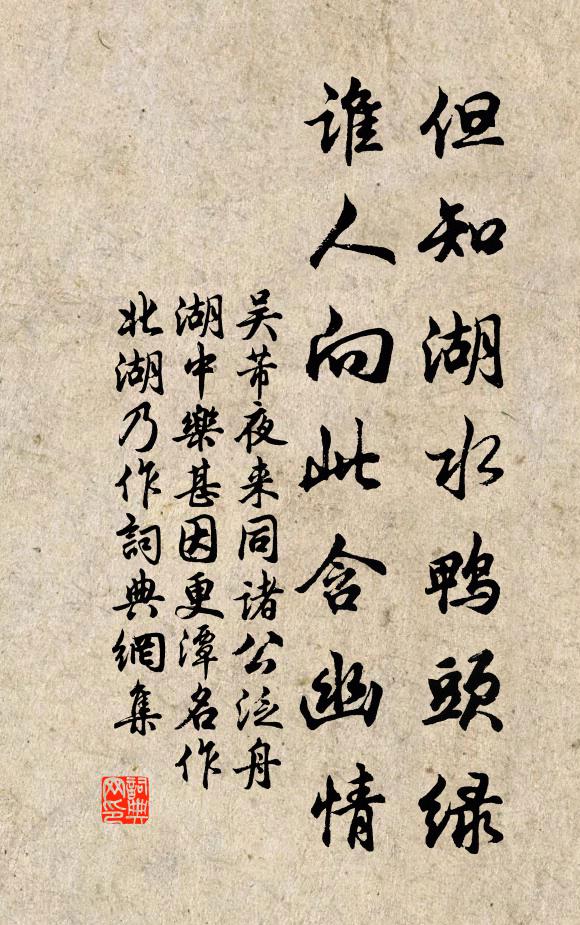 但知湖水鸭頭緑
誰人向此含幽情
吴芾夜来同諸公泛舟
湖中樂甚因更潭名作
北湖乃作詞典網集
詞典
网印